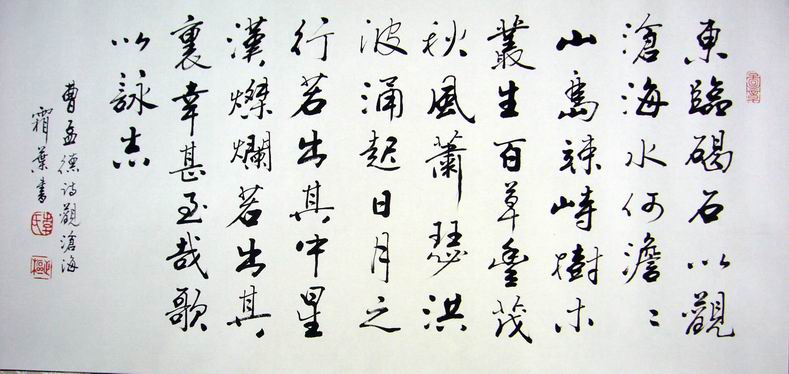 東臨碣石以觀
滄海水何澹〻
山島竦峙樹木
叢生百草豐茂
秋風蕭瑟洪
波涌起日月之
行若出其中星
漢燦爛若出其
裏幸甚至哉歌
以詠志
曹孟德诗觀滄海
霜葉書